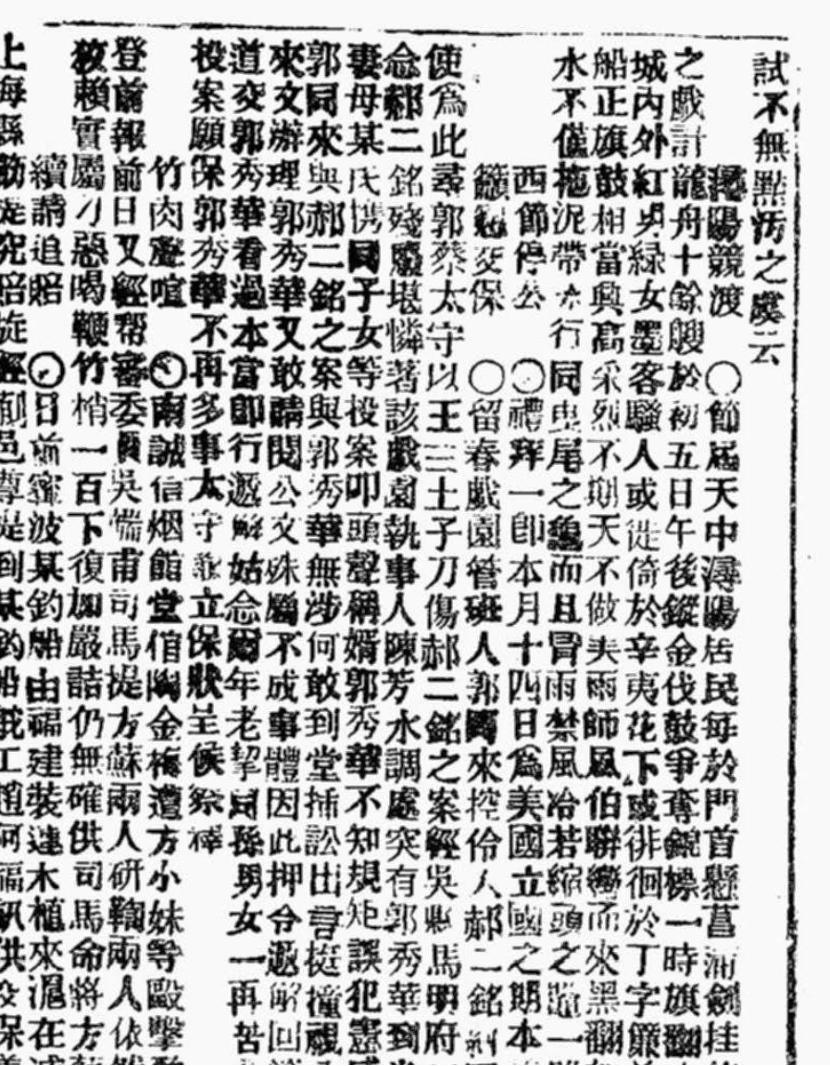 試不無點污之虞云
潯陽競渡 〇節屆天中潯陽居民每於門首懸菖蒲劍挂
之戲計龍舟十餘艘於初五日午後鏦金伐鼓爭奪錦標一時旗翻
城內外紅男綠女墨客騷人或徙倚於辛夷花下或徘徊於丁字簾
船正旗鼓相當興高采烈不期天不做美雨師風伯聯鑣而來黑翻
水不僅拖泥帶水行同曳尾之龜而且冒雨禁風冷若縮頭之鼈一
西節停公 〇禮拜一卽本月十四日爲美國立國之期本
籲懇交保 〇留春戲園管班人郭國來控伶人郝二銘
使爲此尋郭蔡太守以王三土子刀傷郝二銘之案經吳縣馬明府
念郝二銘殘廢堪憐著該戲園執事人陳芳水調處突有郭秀華到
妻母某氏携同子女等投案叩頭聲稱婿郭秀華不知規矩誤犯憲
郭同來與郝二銘之案與郭秀華無涉何敢到堂插訟出言挺撞
來文辦理郭秀華又敢請閱公文殊屬不成事體因此押令遞解回
道交郭秀華看過本當卽行遞解姑念爾年老挈同孫男女一再苦
投案願保郭秀華不再多事太守飭立保狀呈候察釋
竹肉聲喧 〇南誠信烟館堂倌陶金梅遭方小妹等毆擊
登前報前日又經帮審委員吳惴甫司馬提方蘇兩人研鞫兩人依
狡賴實屬刁惡喝鞭竹梢一百下復加嚴詰仍無確供司馬命將方
續請追賠 〇日前寧波某釣船由福建裝運木植來滬在
上海縣飭提究賠旋經到邑尊提到某釣船舵工趙阿福訊供